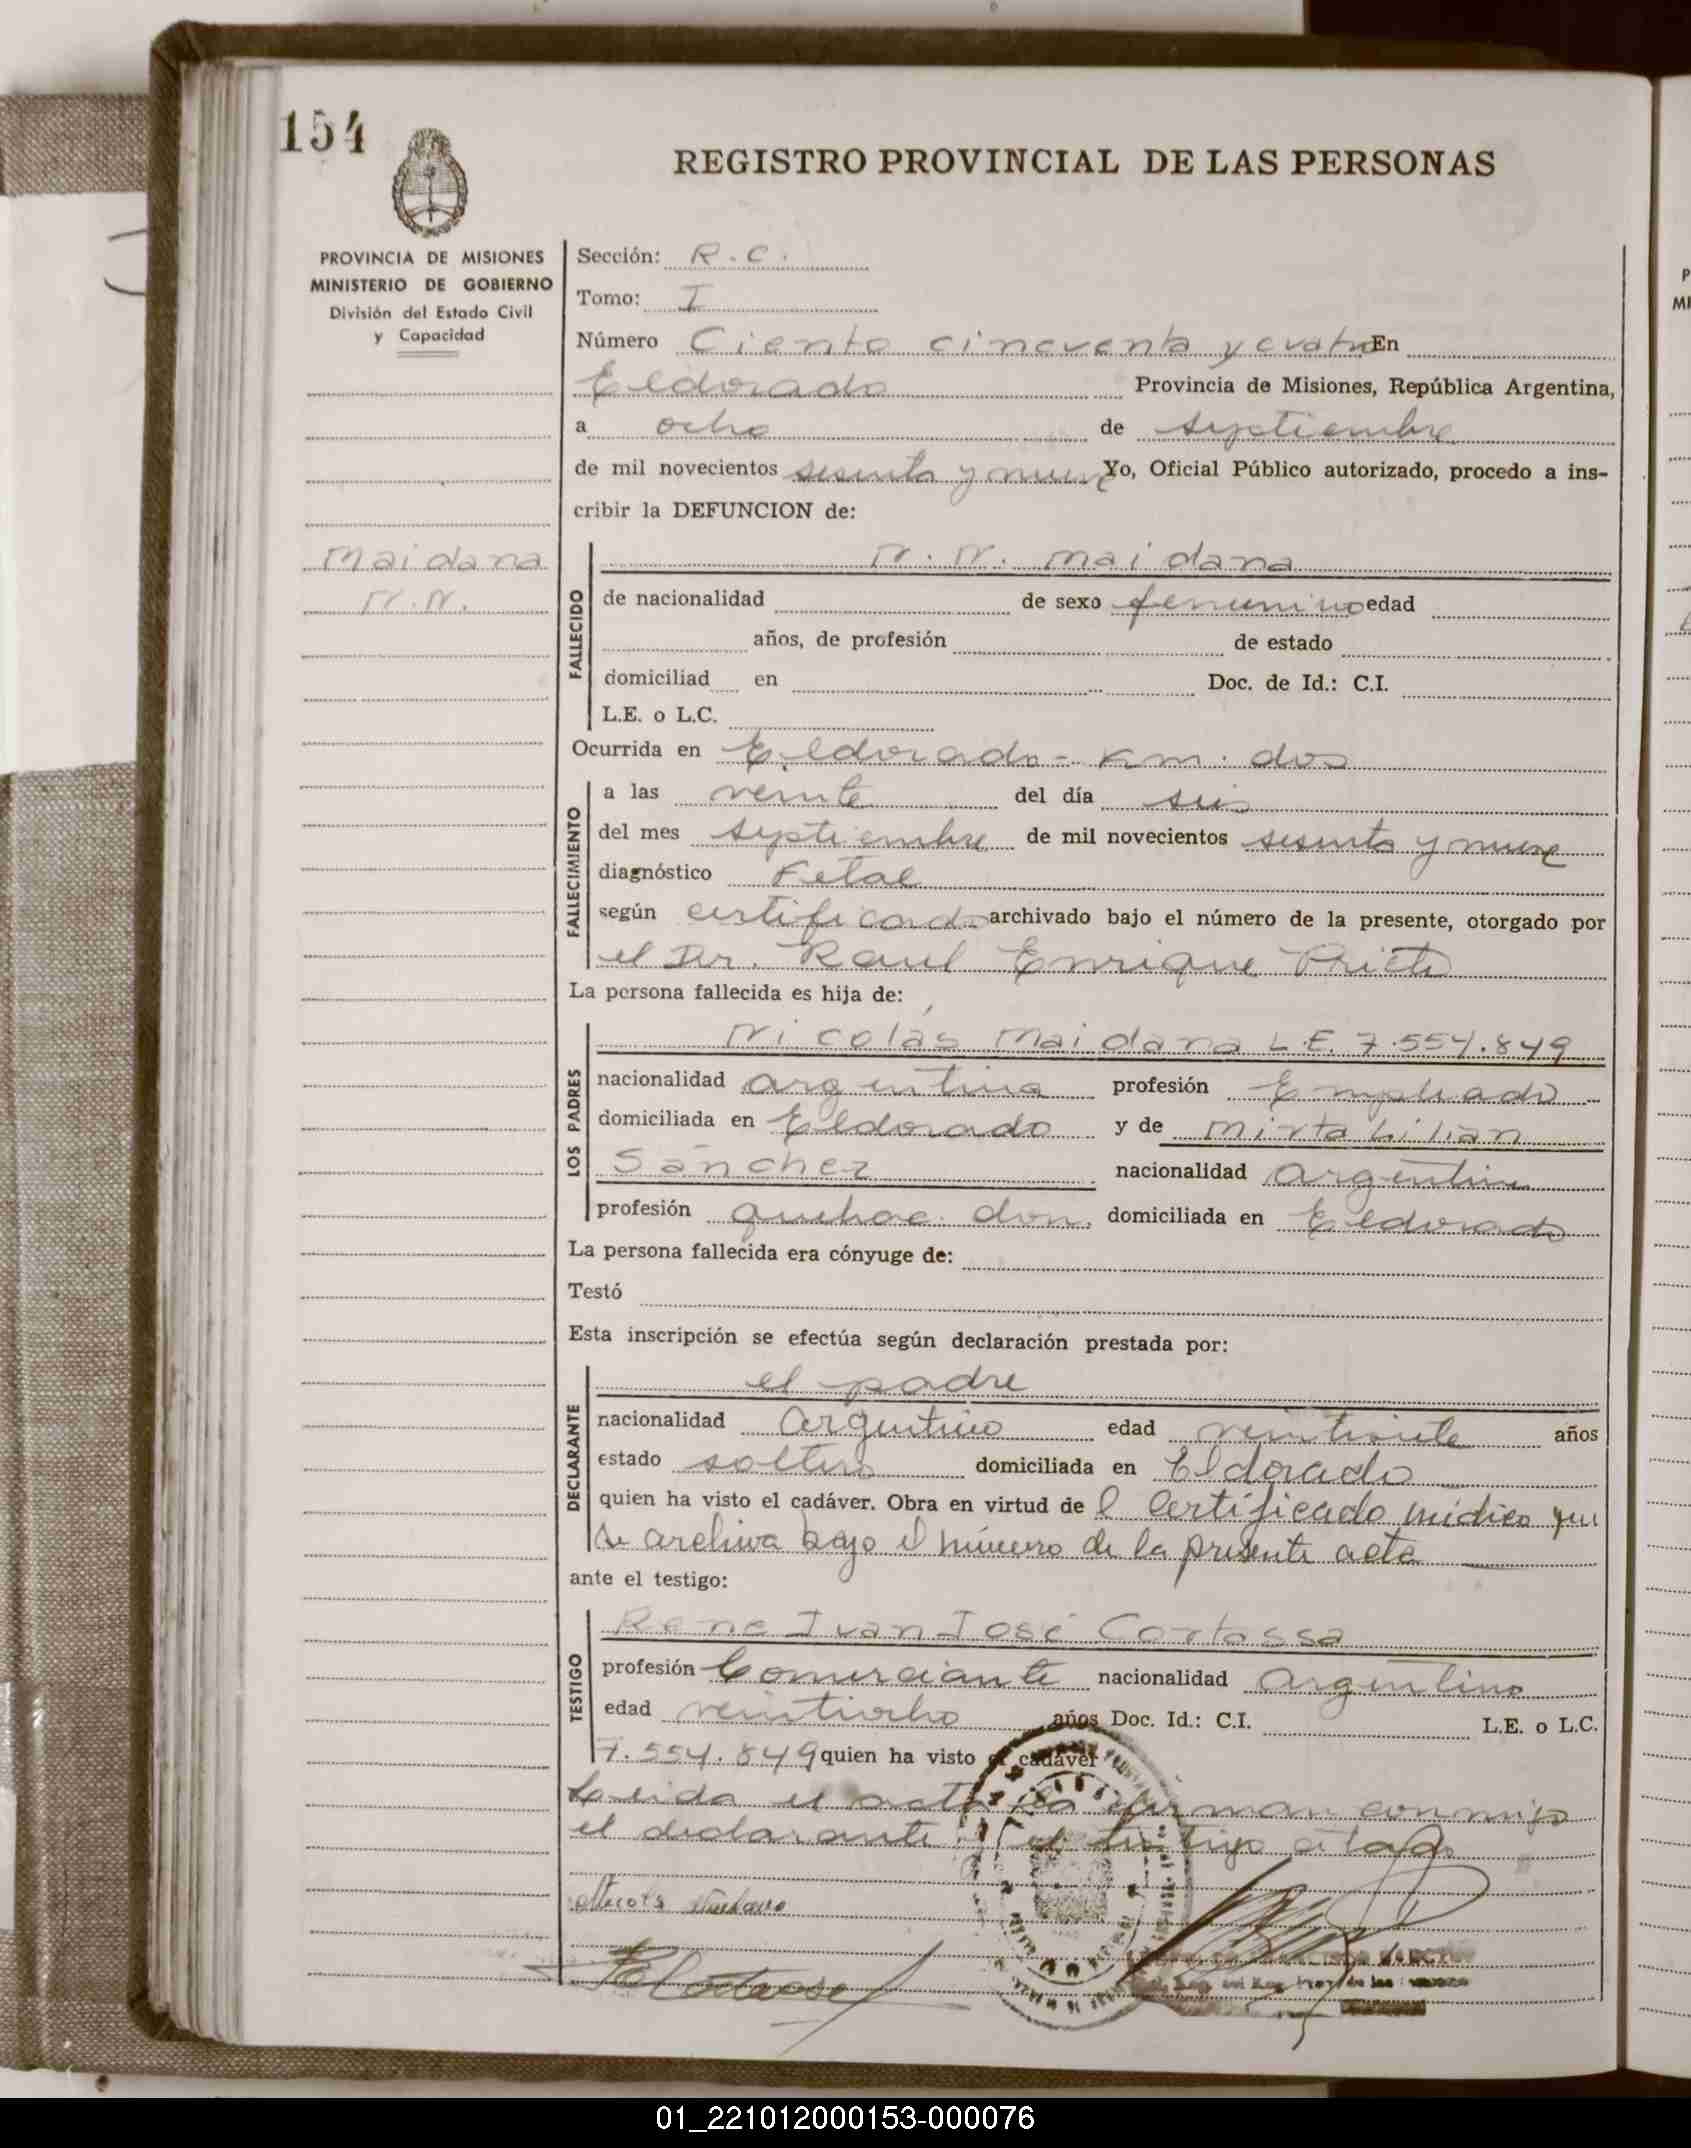 154
REGISTRO PROVINCIAL DE LAS PERSONAS
PROVINCIA DE MISIONES
MINISTERIO DE GOBIERNO
División del Estado Civil
y Capacidad
Maidana
N.N.
Sección: R.C.
Tomo: I
Número Ciento cincuenta y cuatro En
Eldorado Provincia de Misiones, República Argentina,
a ocho de septiembre
de mil novecientos sesenta y nueve Yo, Oficial Público autorizado, procedo a ins-
cribir la DEFUNCION de:
FALLECIDO
N. N. Maidana
de nacionalidad de sexo femenino edad
años, de profesión de estado
domiciliad en Doc. de Id.: C.I.
L.E. o L.C.
Ocurrida en Eldorado - Km. dos
FALLECIMIENTO
a las veinte del día seis
del mes septiembre de mil novecientos sesenta y nueve
diagnóstico Fetal
según certificado archivado bajo el número de la presente, otorgado por
el Dr. Raul Enrique Prieto
La persona fallecida es hija de:
LOS PADRES
Nicolás Maidana L.E. 7.554.849
nacionalidad argentina profesión Empleado
domiciliada en Eldorado y de Mirta Lilian
Sanchez nacionalidad argentina
profesión quehac. dom. domiciliada en Eldorado
La persona fallecida era cónyuge de:
Testó
Esta inscripción se efectúa según declaración prestada por:
DECLARANTE
el padre
nacionalidad argentino edad veintisiete años
estado soltero domiciliada en Eldorado
quien ha visto el cadáver. Obra en virtud de l certificado médico que
se archiva bajo el número de la presente acta
ante el testigo:
TESTIGO
Rene Ivan José Cortassa
profesión Comerciante nacionalidad argentino
edad veintiocho años Doc. Id.: C.I. L.E. o L.C.
7.554.849 quien ha visto el cadáver
Leida el acta la firman conmigo
el declarante y el testigo citado
Nicolás Maidana
01_221012000153-000076